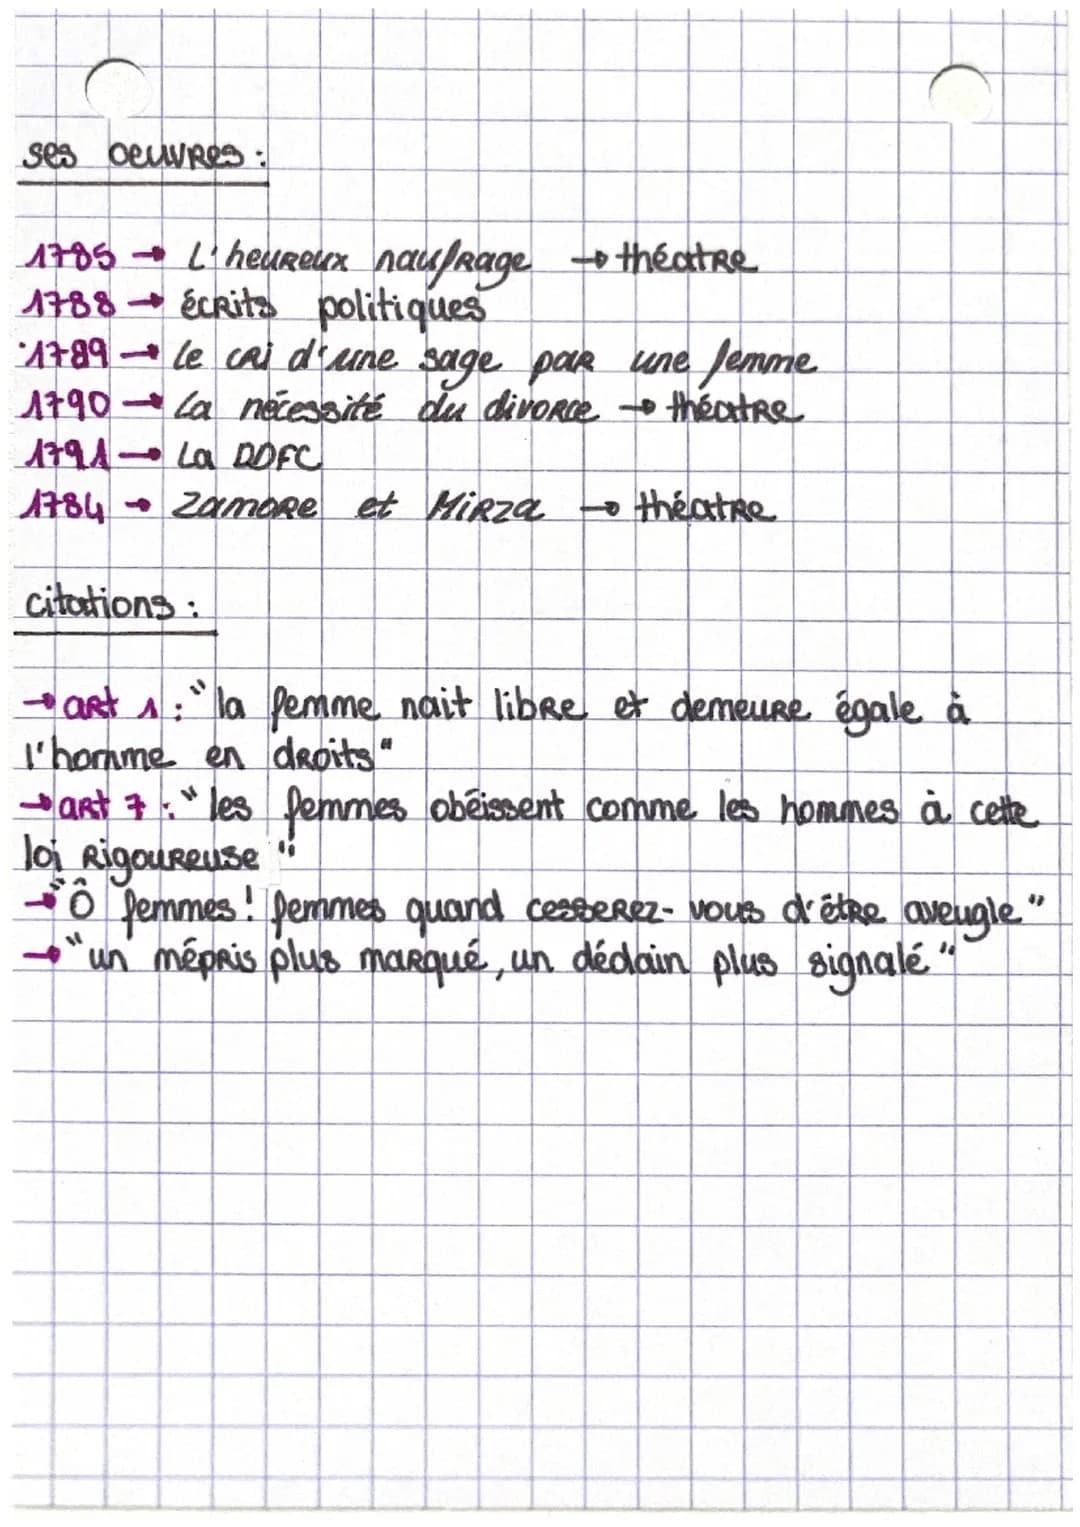 ses oeuvres :
1785 → L'heureux naufrage → théatre
1788 → écrits politiques
1789 → le cri d'une sage par une femme
1790 → La nécessité du divorce → théatre
1791 → La DDFC
1784 → Zamore et Mirza → théatre
citations :
→ art 1 : "la femme nait libre et demeure égale à
l'homme en droits"
→ art 7 : "les femmes obéissent comme les hommes à cette
loi rigoureuse"
→ "Ô femmes ! femmes quand cesserez-vous d'être aveugle"
→ "un mépris plus marqué, un dédain plus signalé"